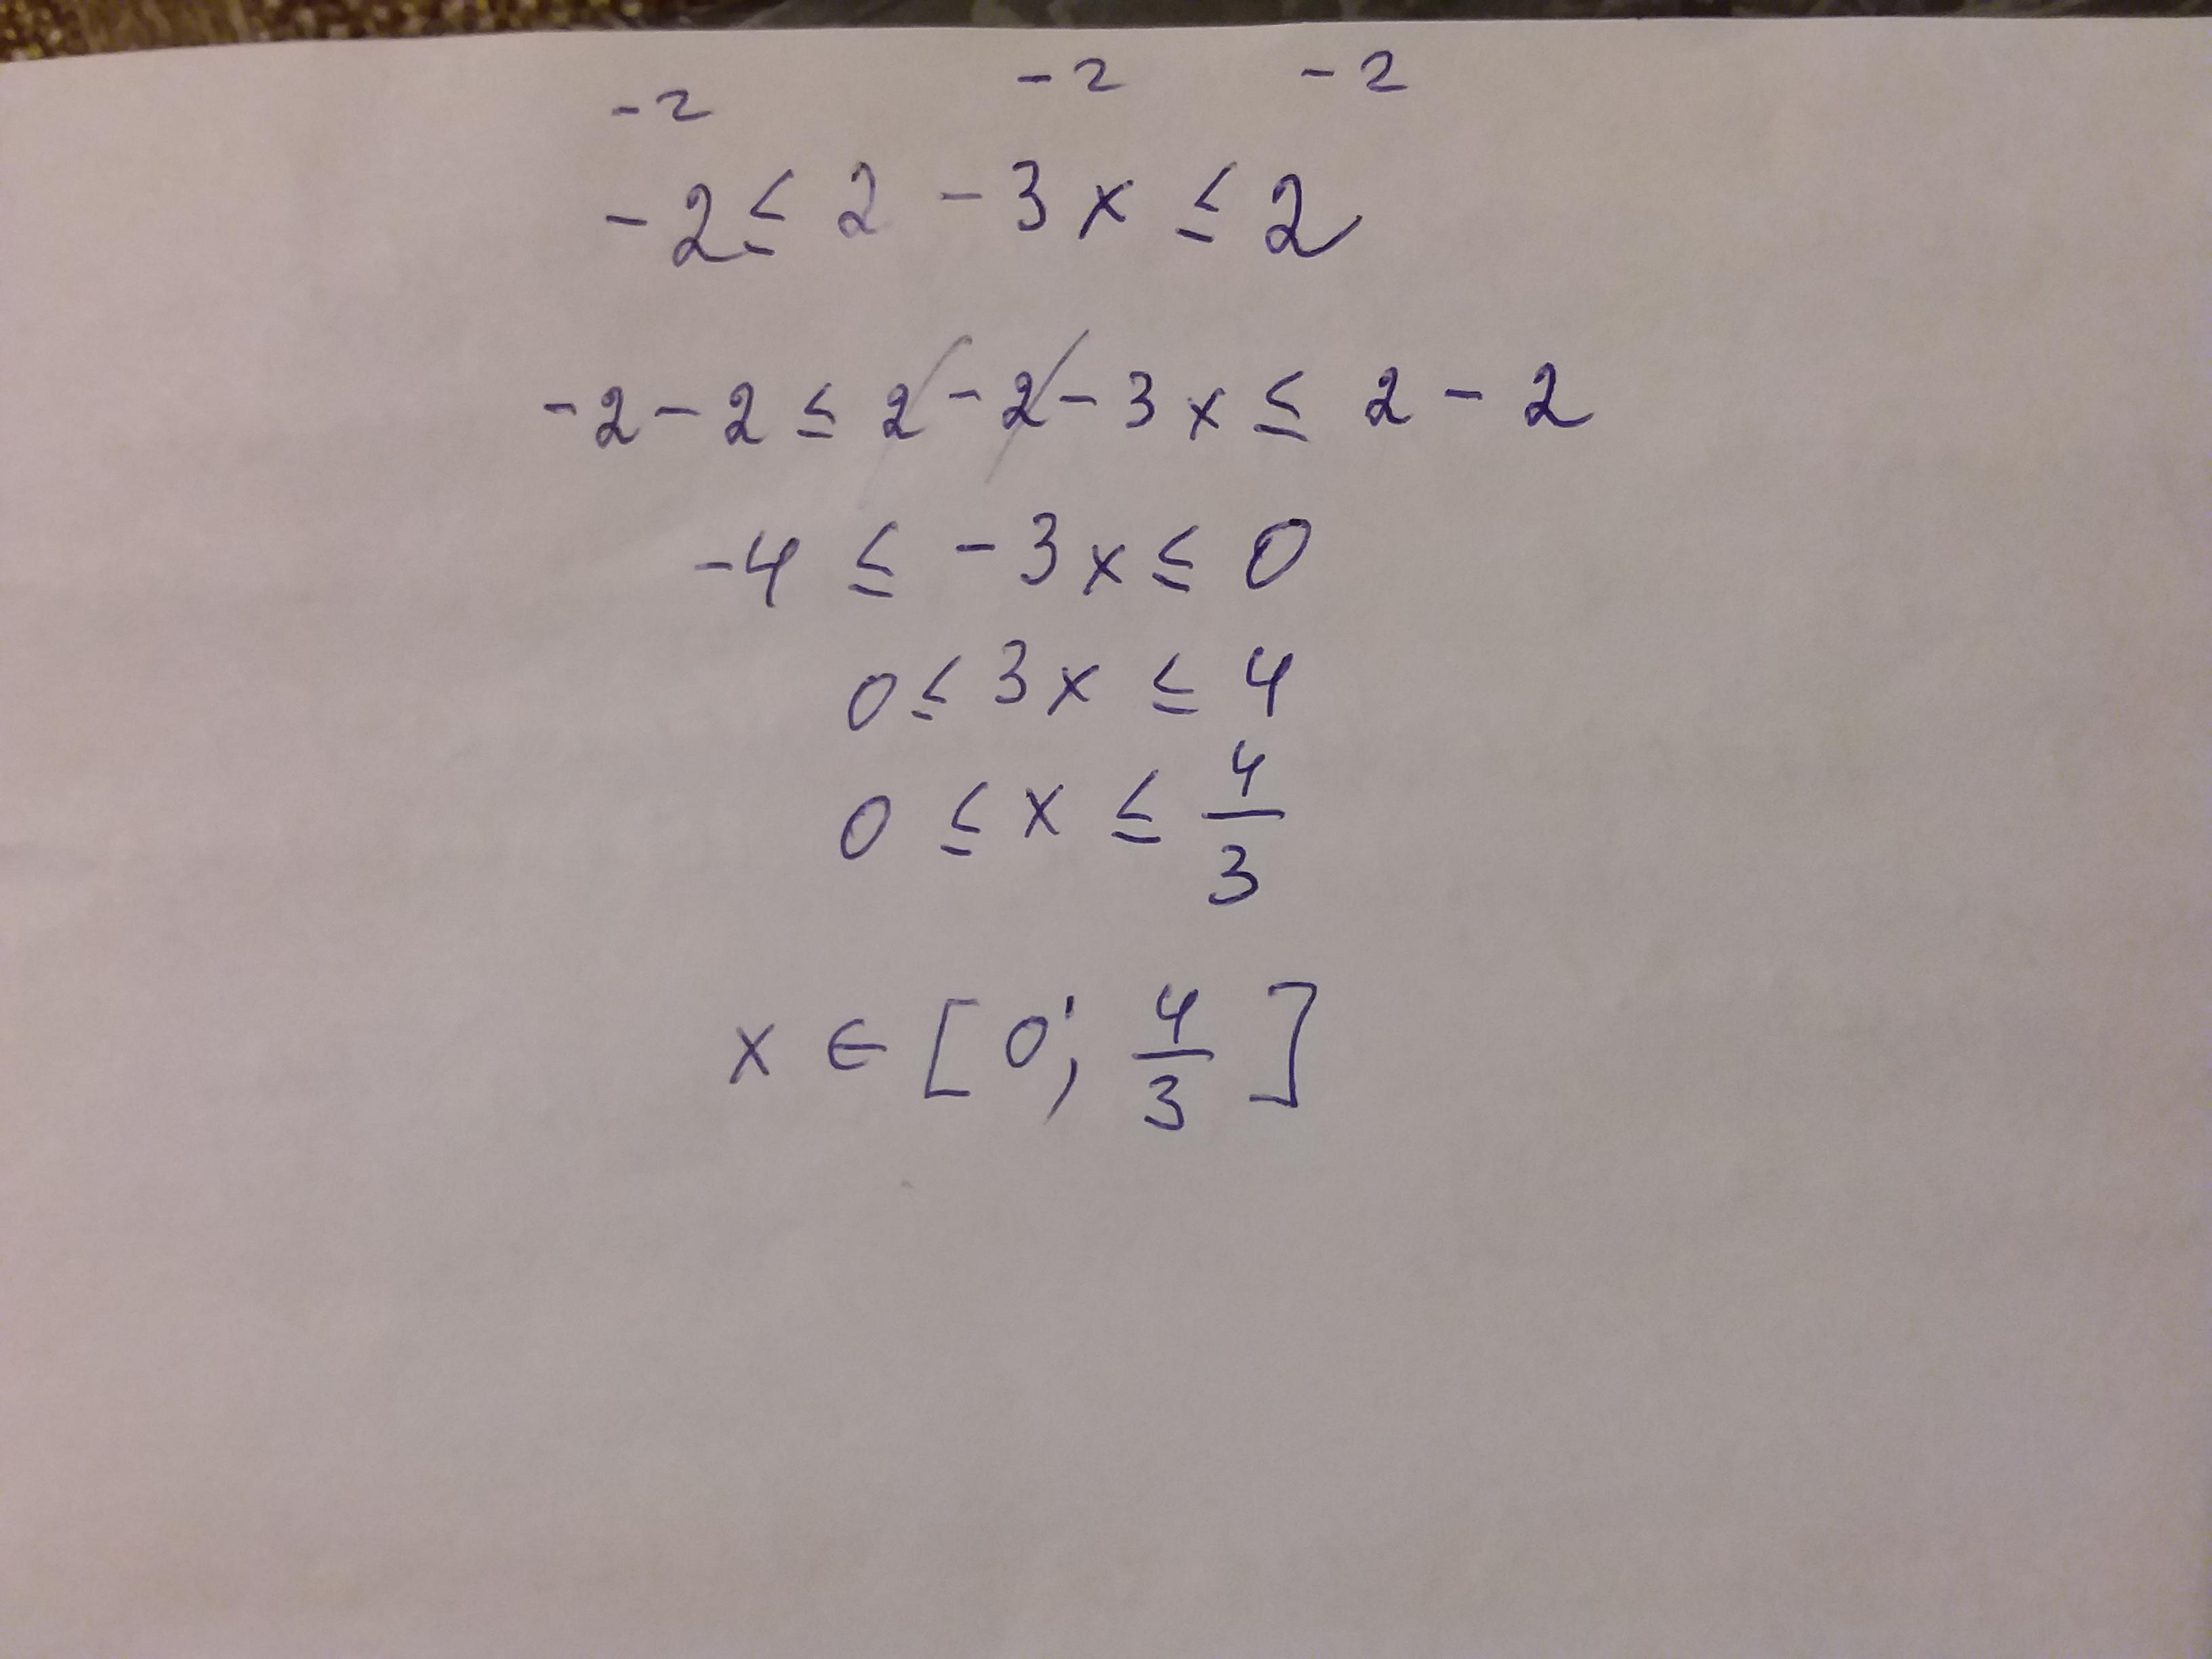 -2 -2 -2
-2 ≤ 2 - 3x ≤ 2
-2 - 2 ≤ 2 - 2 - 3x ≤ 2 - 2
-4 ≤ -3x ≤ 0
0 ≤ 3x ≤ 4
0 ≤ x ≤ 4/3
x ∈ [0; 4/3]